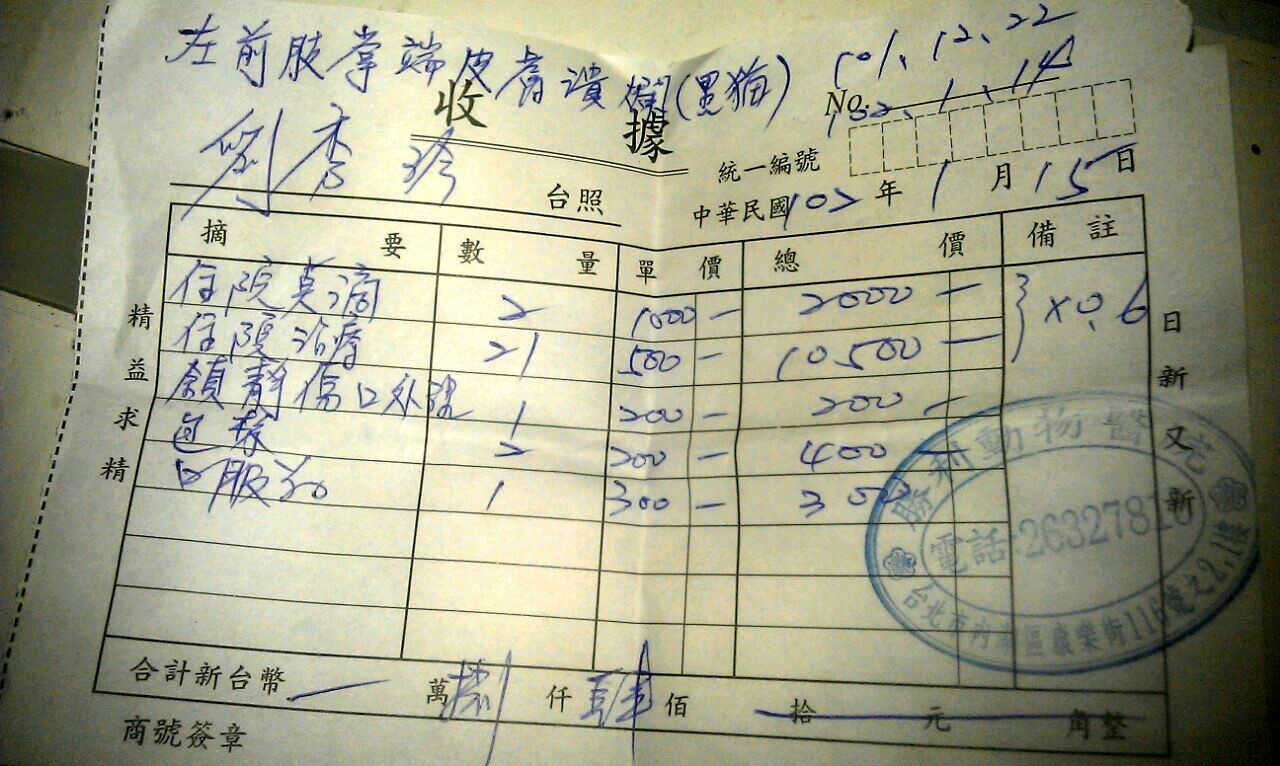 左前肢掌端皮膚潰爛(黑貓)
101.12.22
102.1.14
收據
No.
統一編號
劉秀珍
台照
中華民國102年1月15日
摘要 數量 單價 總價 備註
住院點滴 2 1000— 2000— }×0.6
住院治療 21 500— 10500—
鎮靜傷口外 1 200— 200—
2 200— 400—
口服药 1 300— 300
精益求精
日新又新
合計新台幣 一萬 仟 佰 拾 元 角整
商號簽章
動物醫院
電話:2632781
台北市內湖區康樂街116號之2,1樓